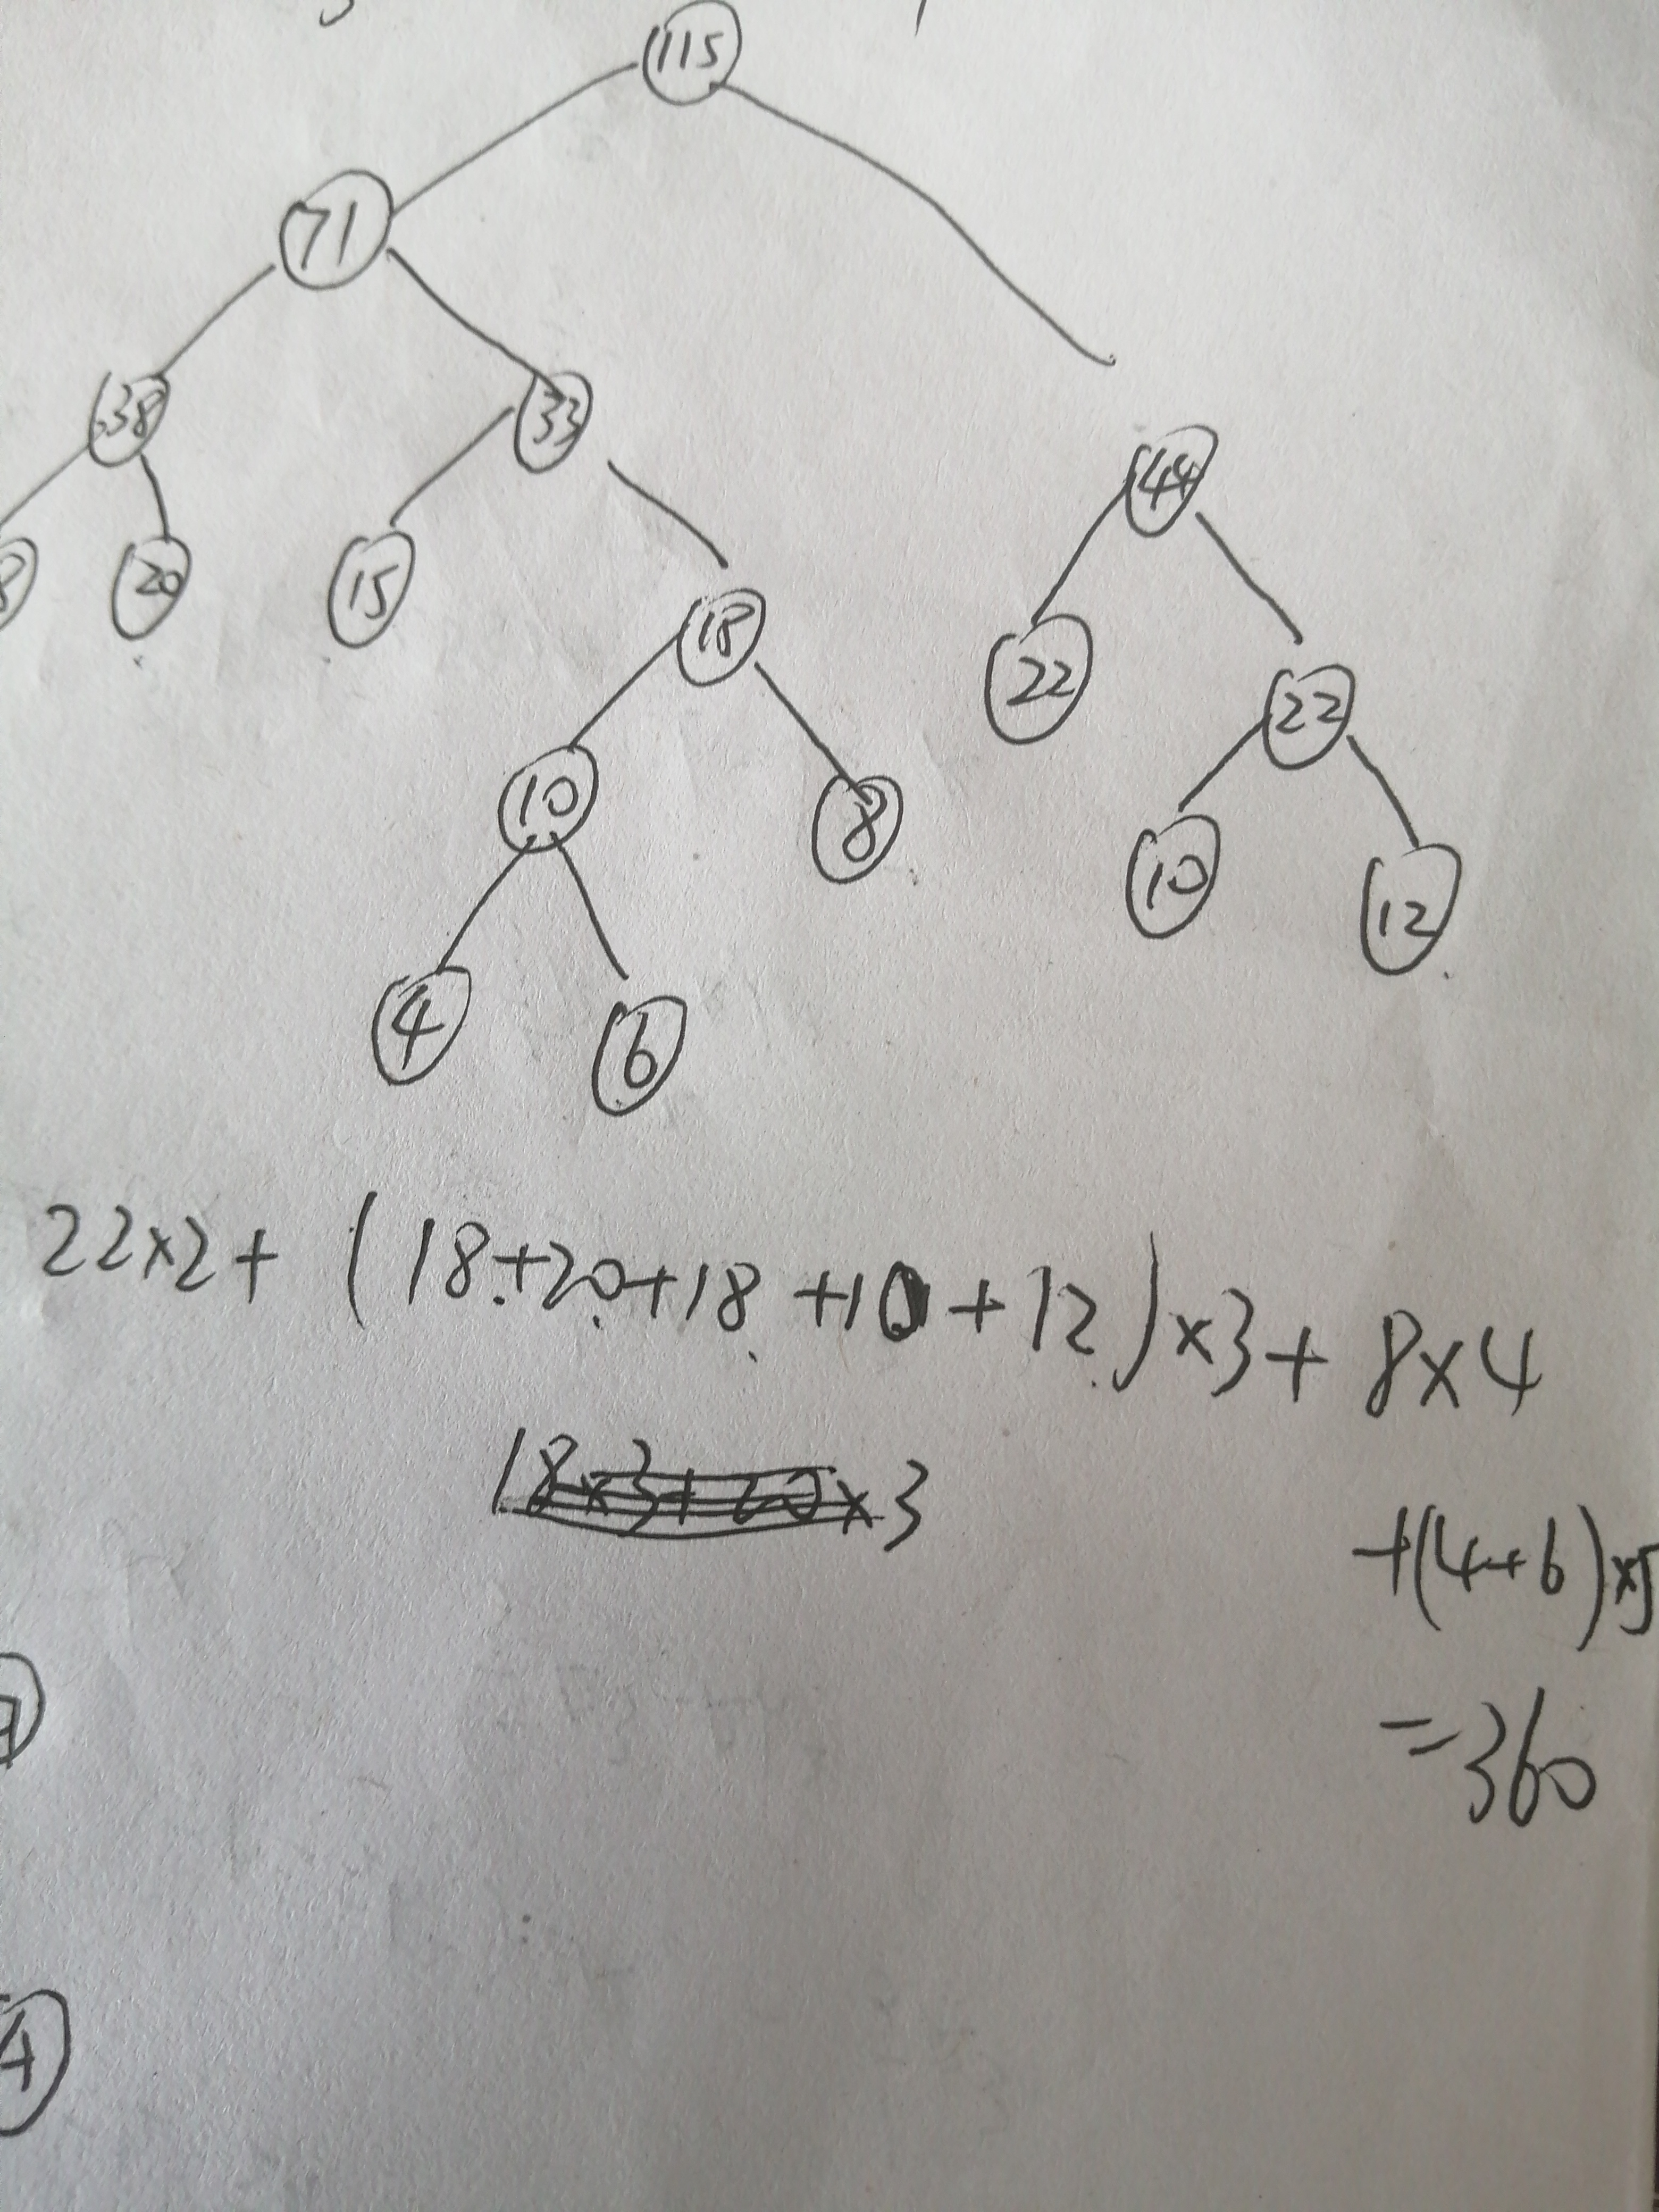 115
71
38 33
44
8 20 15
18
22 22
10 8
10 12
4 6
22×2+ (18+20+18+10+12)×3+ 8×4
18×3+20×3
+(4+6)×5
=360
4